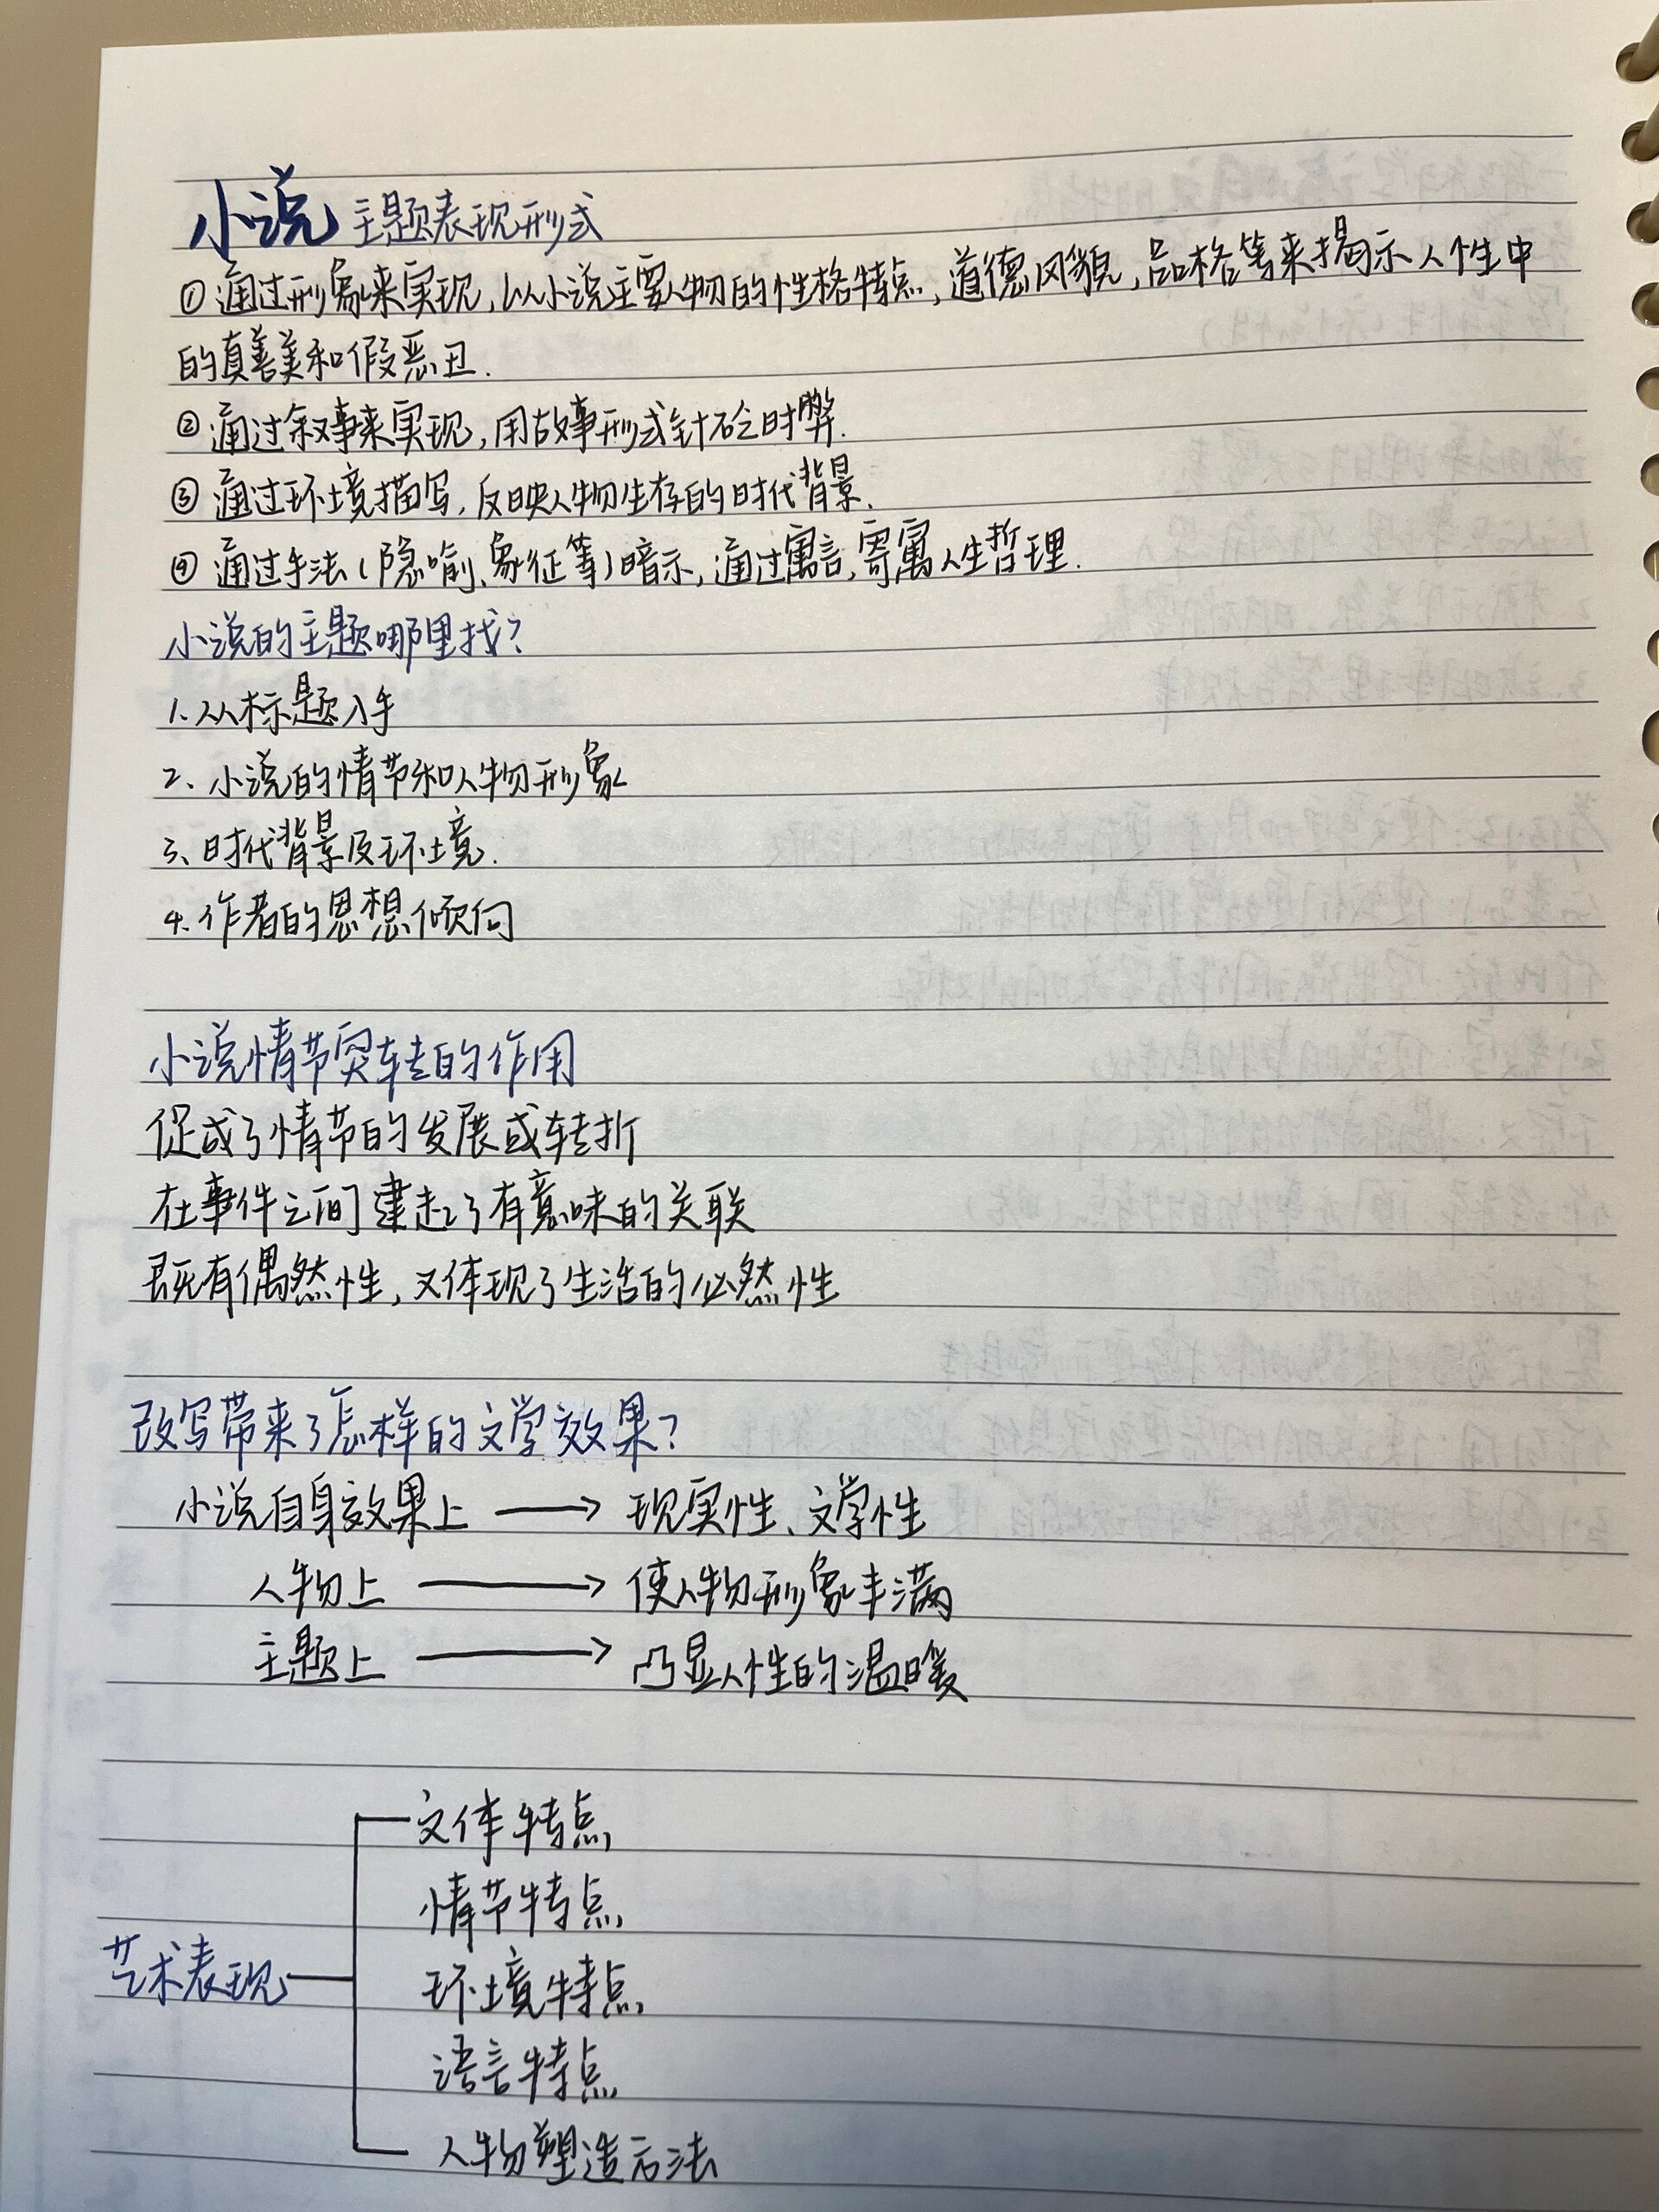 小说 主题表现形式
①通过形象来实现,以小说主要人物的性格特点,道德风貌,品格等来揭示人性中
的真善美和假恶丑.
②通过叙事来实现,用故事形式针砭时弊.
③通过环境描写,反映人物生存的时代背景.
④通过手法(隐喻、象征等)暗示,通过寓言,寄寓人生哲理.
小说的主题哪里找?
1.从标题入手
2、小说的情节和人物形象
3、时代背景及环境.
4.作者的思想倾向
小说情节突转的作用
促成了情节的发展或转折
在事件之间建起了有意味的关联
既有偶然性,又体现了生活的必然性
改写带来了怎样的文学效果?
小说自身效果上 → 现实性、文学性
人物上 → 使人物形象丰满
主题上 → 凸显人性的温暖
文体特点
情节特点
艺术表现
环境特点
语言特点
人物塑造方法